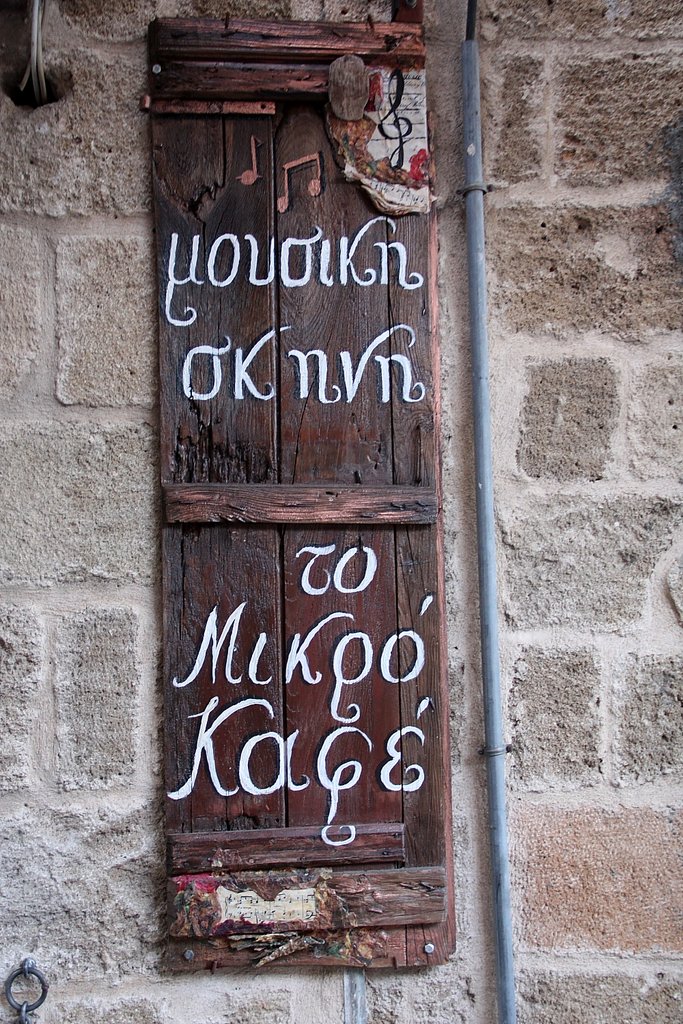 μουσική
σκηνή
το
Μικρό
Καφέ